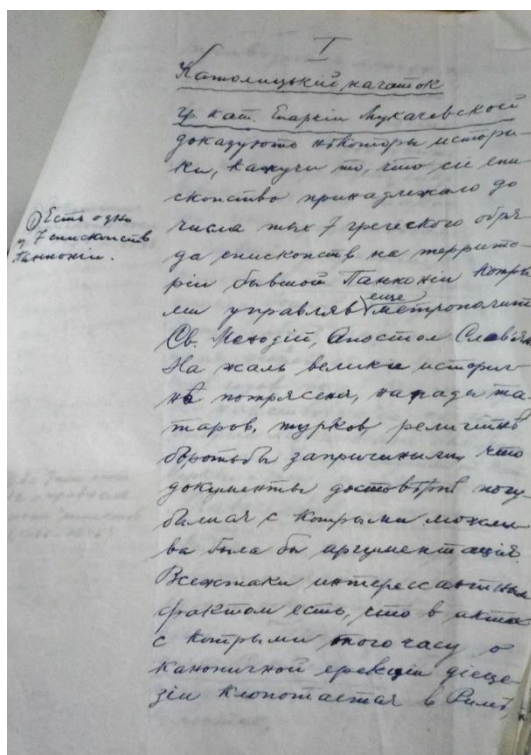 I
Католицькій начаток
гр. кат. Епархіи Мукачевской
доказуютъ нѣкоторы истори-
ки, кажучи то, что сіе епи-
скопство принадлежало до
числа тых 7 греческого обря-
да епископств на террито-
ріи бывшой Панноніи котры-
ми управляв еще метрополит
Св. Методій, Апостол Славян
На жаль велики историч-
нѣ потрясеня, напады та-
таров, турков, религійнѣ
боротьбы запричинили, что
документы достовѣрнѣ погу-
билися с котрыми можли-
ва была бы аргументація.
Всежтаки интерессантным
фактом есть, что в актах
с котрыми того часу о
каноничной ерекции діеце-
зіи клопотается в Римѣ,
① Есть одно
з 7 епископств
Панноніи.